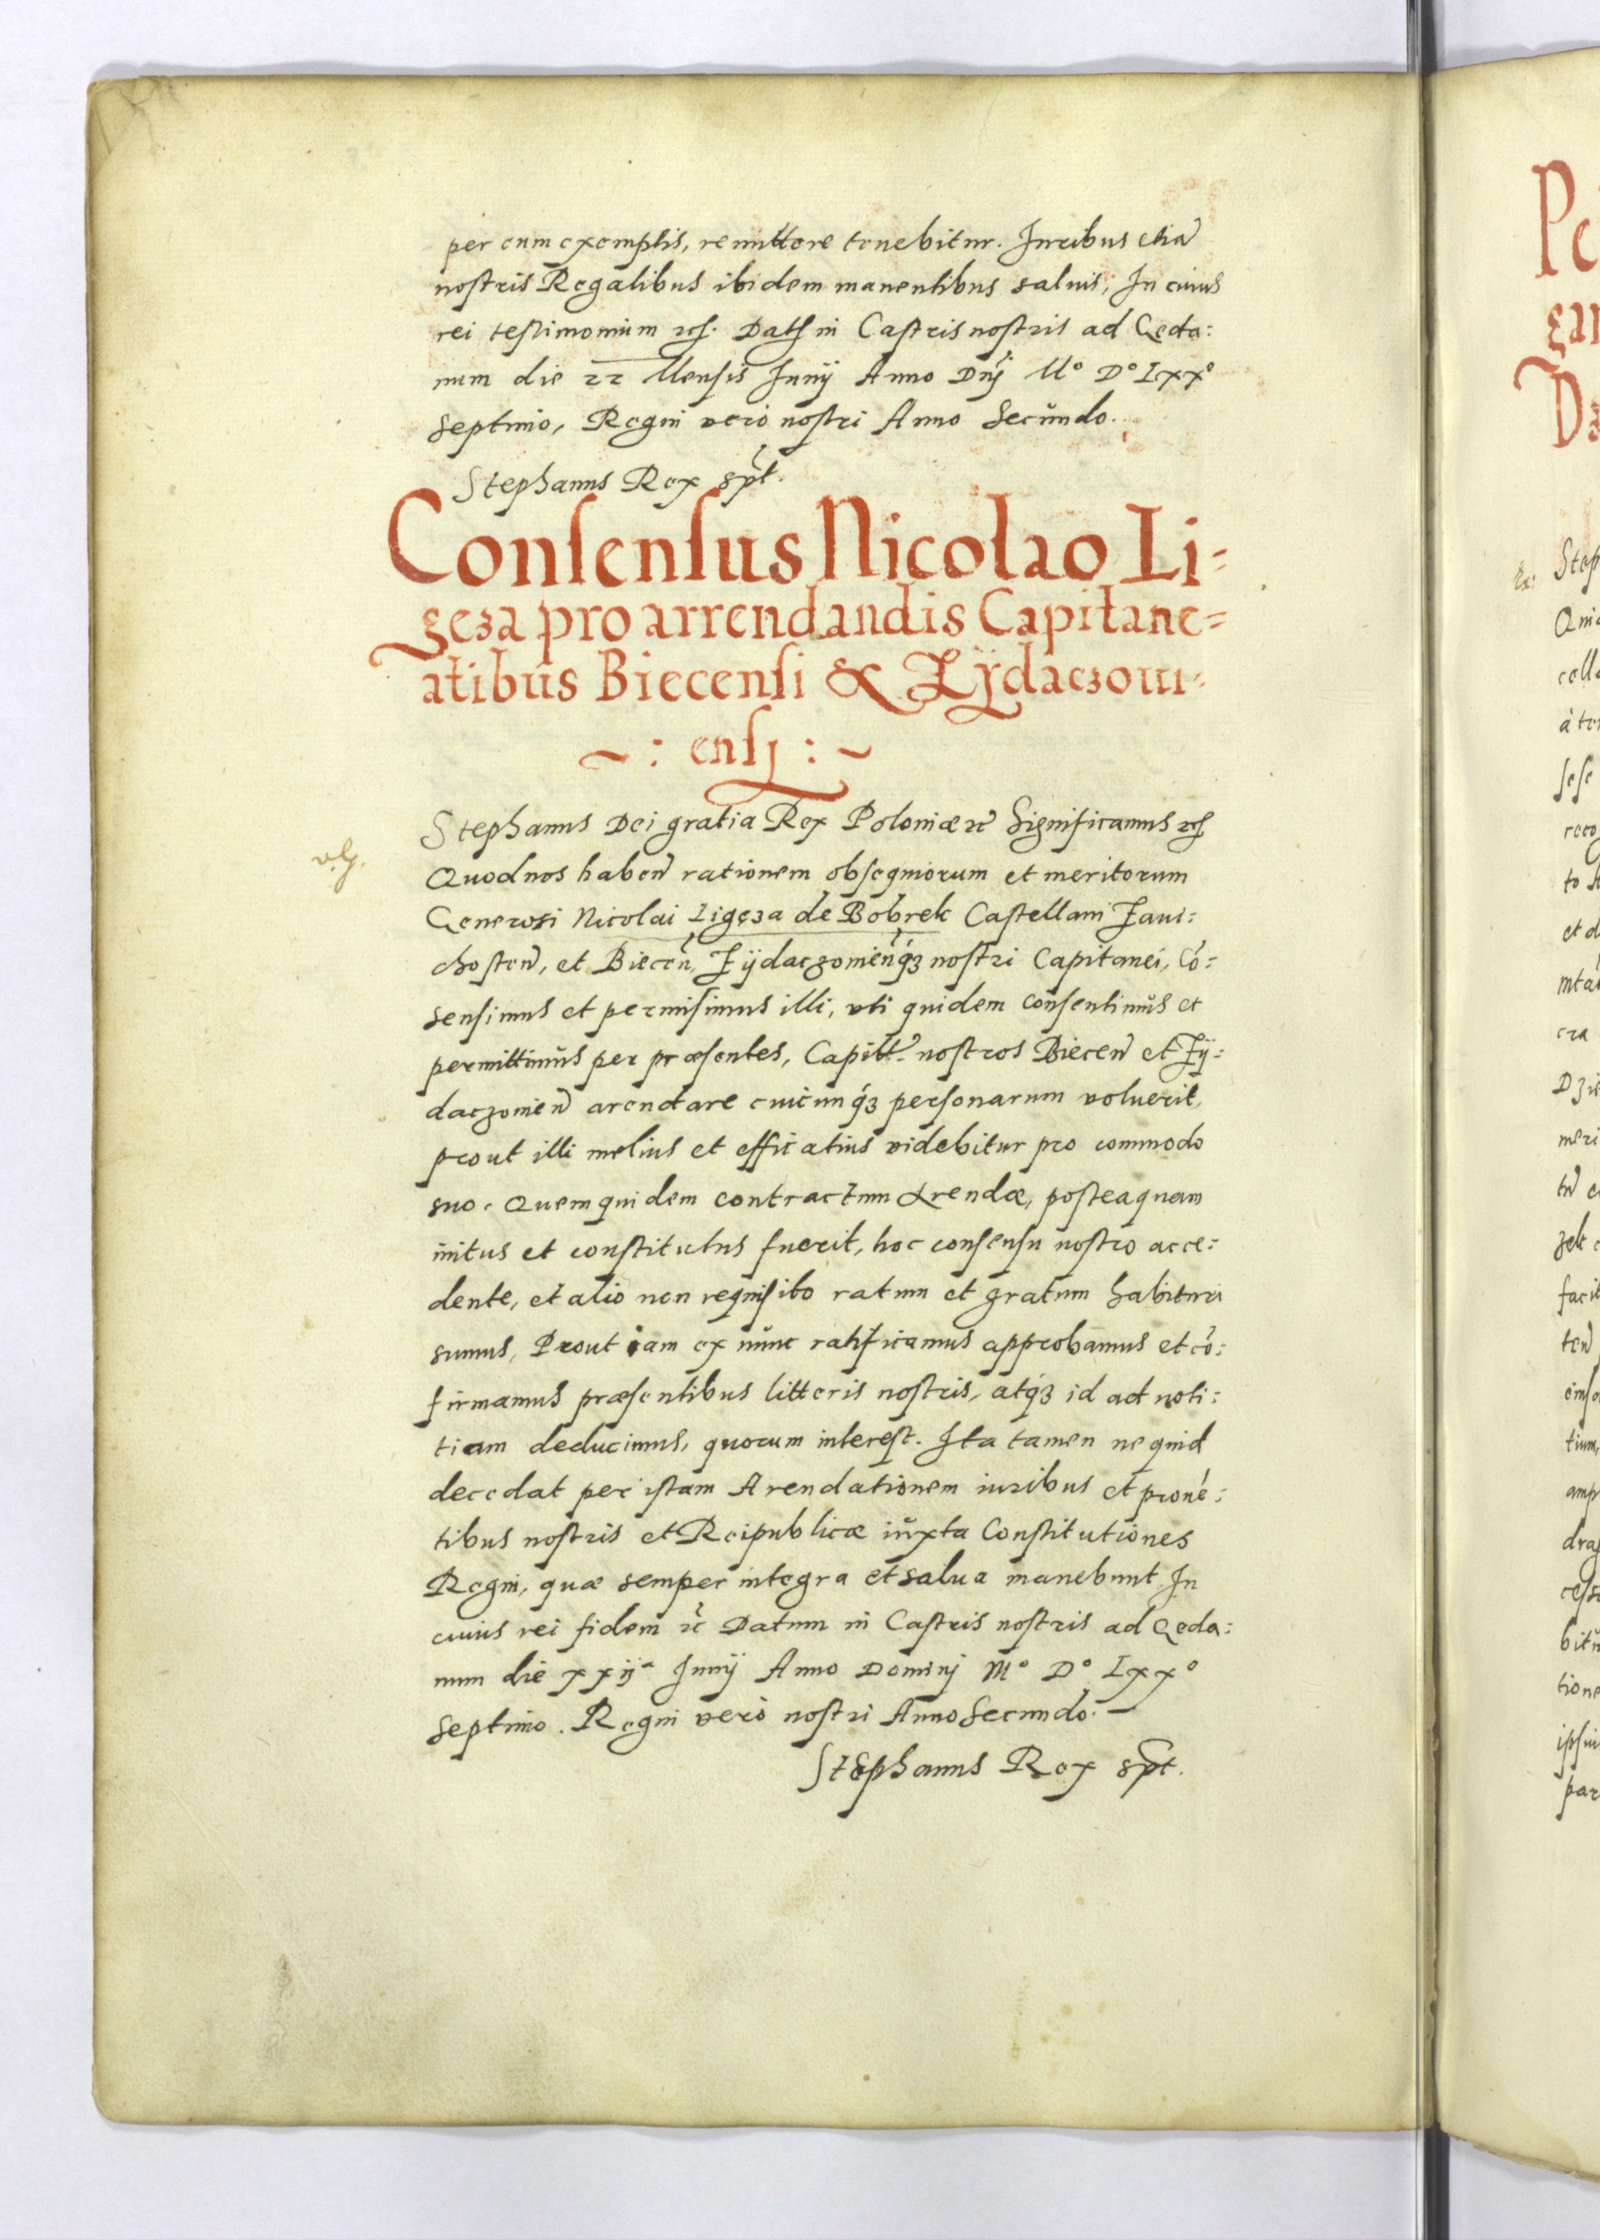 per eum exemptis, remittere tenebitur. Iuribus etiã
nostris Regalibus ibidem manentibus saluis, In cuius
rei testimonium etc. Dat in Castris nostris ad Geda:
num die 22 Mensis Iunij Anno Dnj Mº Dº Lxxº
septimo, Regni verò nostri Anno Secŭndo.
Stephanus Rex spt.
Consensus Nicolao Li-
geza pro arrendandis Capitane-
atibus Biecensi & Zÿdaczoui-
~ : ensj : ~
Stephanus Dei gratia Rex Poloniæ etc Significamus etc
Quod nos haben rationem obsequiorum et meritorum
Generosi Nicolai Ligęza de Bobrek Castellani Zaui:
chosten, et Biecen, Zÿdaczouien q3 nostri Capitanei, Cõ:
sensimus et permisimus illi, vti quidem consentimŭs et
permittimŭs per præsentes, Capitt. nostros Biecen et Zÿ:
daczouien arendare cuicunq3 personarum voluerit,
prout illi melius et efficatius videbitur pro commodo
suo. Quem quidem contractum Arendæ, posteaquam
initus et constitutus fuerit, hoc consensu nostro acce:
dente, et alio non requisito ratum et gratum habituri
sumus, Prout iam ex nŭnc ratificamus approbamus et cõ:
firmamus præsentibus litteris nostris, atq3 id ad noti:
tiam deducimus, quorum interest. Ita tamen ne quid
decedat per istam Arendationem iuribus et prouẽ:
tibus nostris et Reipublicæ iŭxta Constitutiones
Regni, quæ semper integra et salua manebunt. In
cuius rei fidem etc Datum in Castris nostris ad Geda:
num die xxijª Iunij Anno Dominj Mº Dº Lxxº
septimo. Regni verò nostri Anno Secundo.
Stephanus Rex spt.